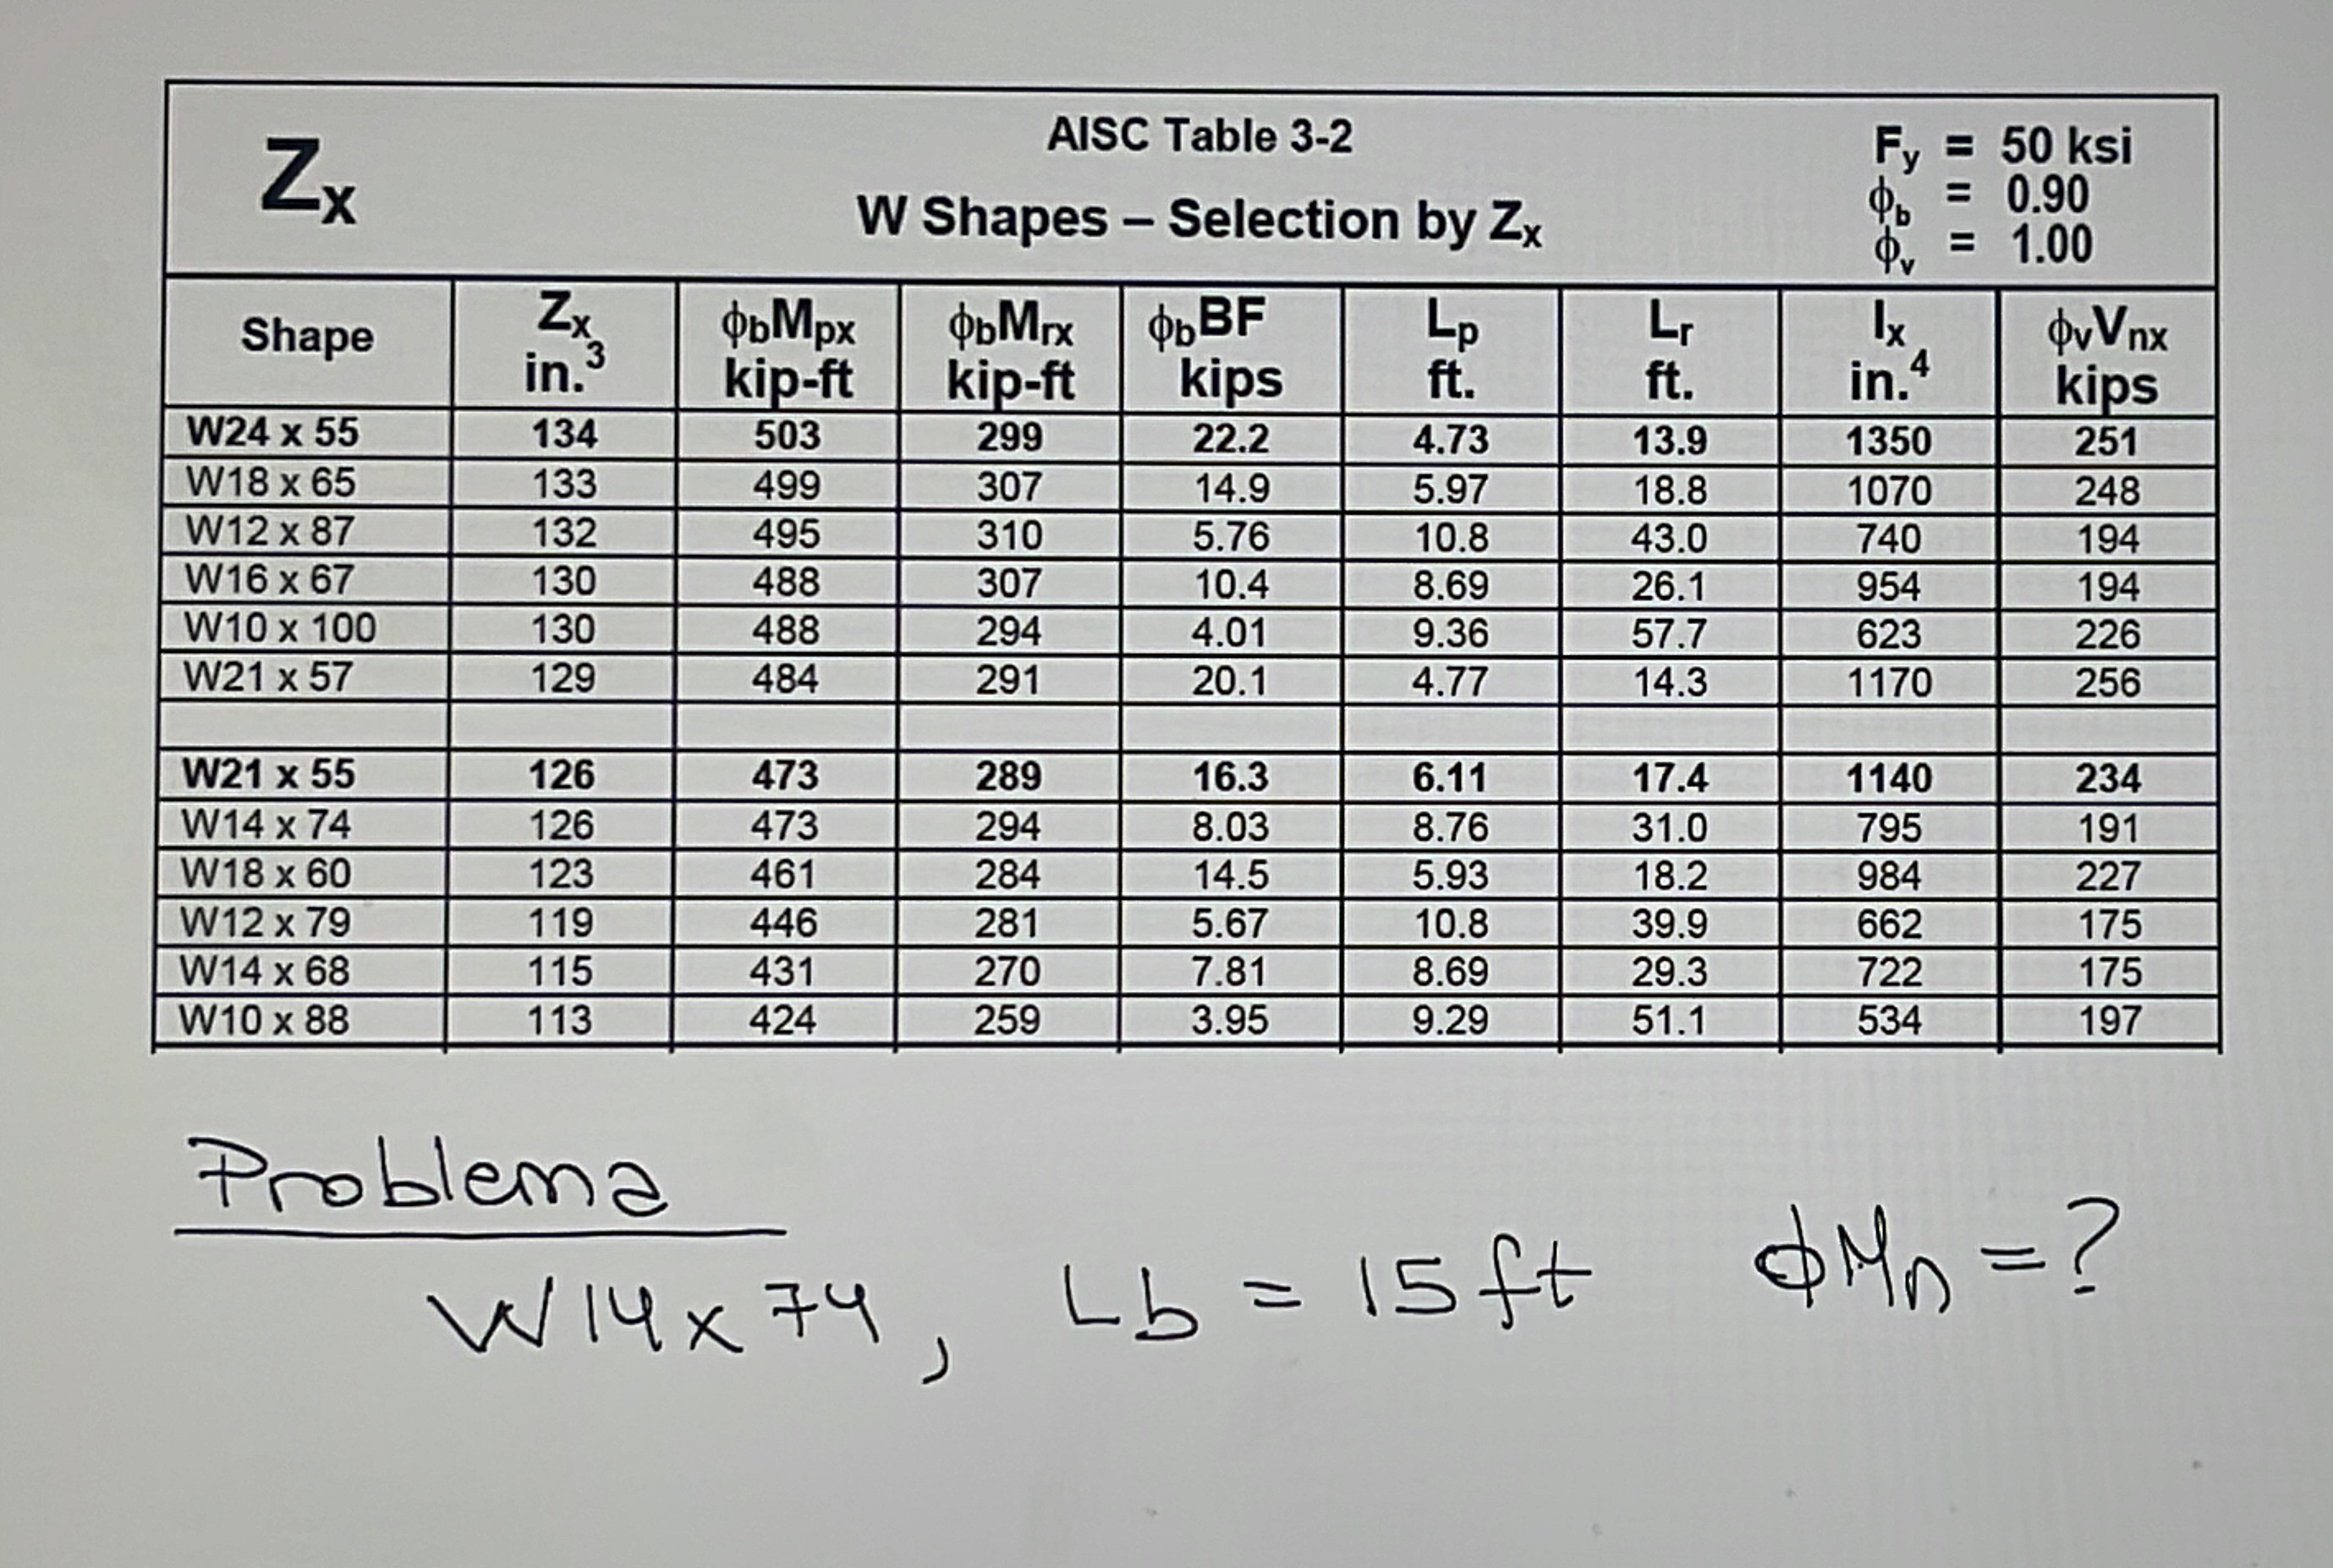 Zx AISC Table 3-2 Fy = 50 ksi
W Shapes – Selection by Zx ϕb = 0.90
ϕv = 1.00
Shape Zx in.³ ϕbMpx kip-ft ϕbMrx kip-ft ϕbBF kips Lp ft. Lr ft. Ix in.⁴ ϕvVnx kips
W24 x 55 134 503 299 22.2 4.73 13.9 1350 251
W18 x 65 133 499 307 14.9 5.97 18.8 1070 248
W12 x 87 132 495 310 5.76 10.8 43.0 740 194
W16 x 67 130 488 307 10.4 8.69 26.1 954 194
W10 x 100 130 488 294 4.01 9.36 57.7 623 226
W21 x 57 129 484 291 20.1 4.77 14.3 1170 256
W21 x 55 126 473 289 16.3 6.11 17.4 1140 234
W14 x 74 126 473 294 8.03 8.76 31.0 795 191
W18 x 60 123 461 284 14.5 5.93 18.2 984 227
W12 x 79 119 446 281 5.67 10.8 39.9 662 175
W14 x 68 115 431 270 7.81 8.69 29.3 722 175
W10 x 88 113 424 259 3.95 9.29 51.1 534 197
Problema
W14x74, Lb = 15 ft ϕMn = ?